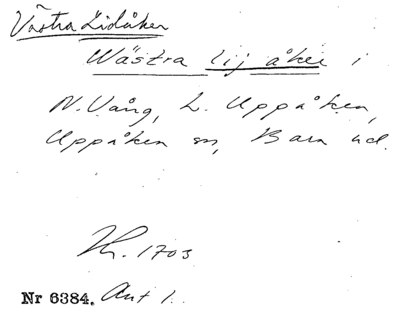 Västra Lidåker
Wästra lij åker i
N. Vång, L. Uppåkra,
Uppåkra sn, Bara hd.
Hh. 1703
Nr 6384. Ant 1.